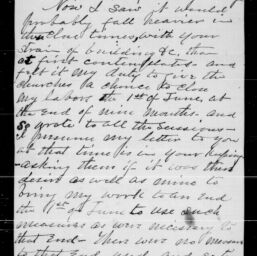 Now I saw it would
probably fall heavier in
time, with your
strain of building &c, than
at first contemplated - and
felt it my duty to give the
churches a chance to close
my labors the 1st of June, at
the end of nine months. and
so wrote to all the sessions -
I presume my letter to you
at that time is in your keeping
- asking them if it was their
desire as well as mine to
bring my work to an end
the 1st of June to use such
measures as were necessary to
that end - There were not
to that end used, and